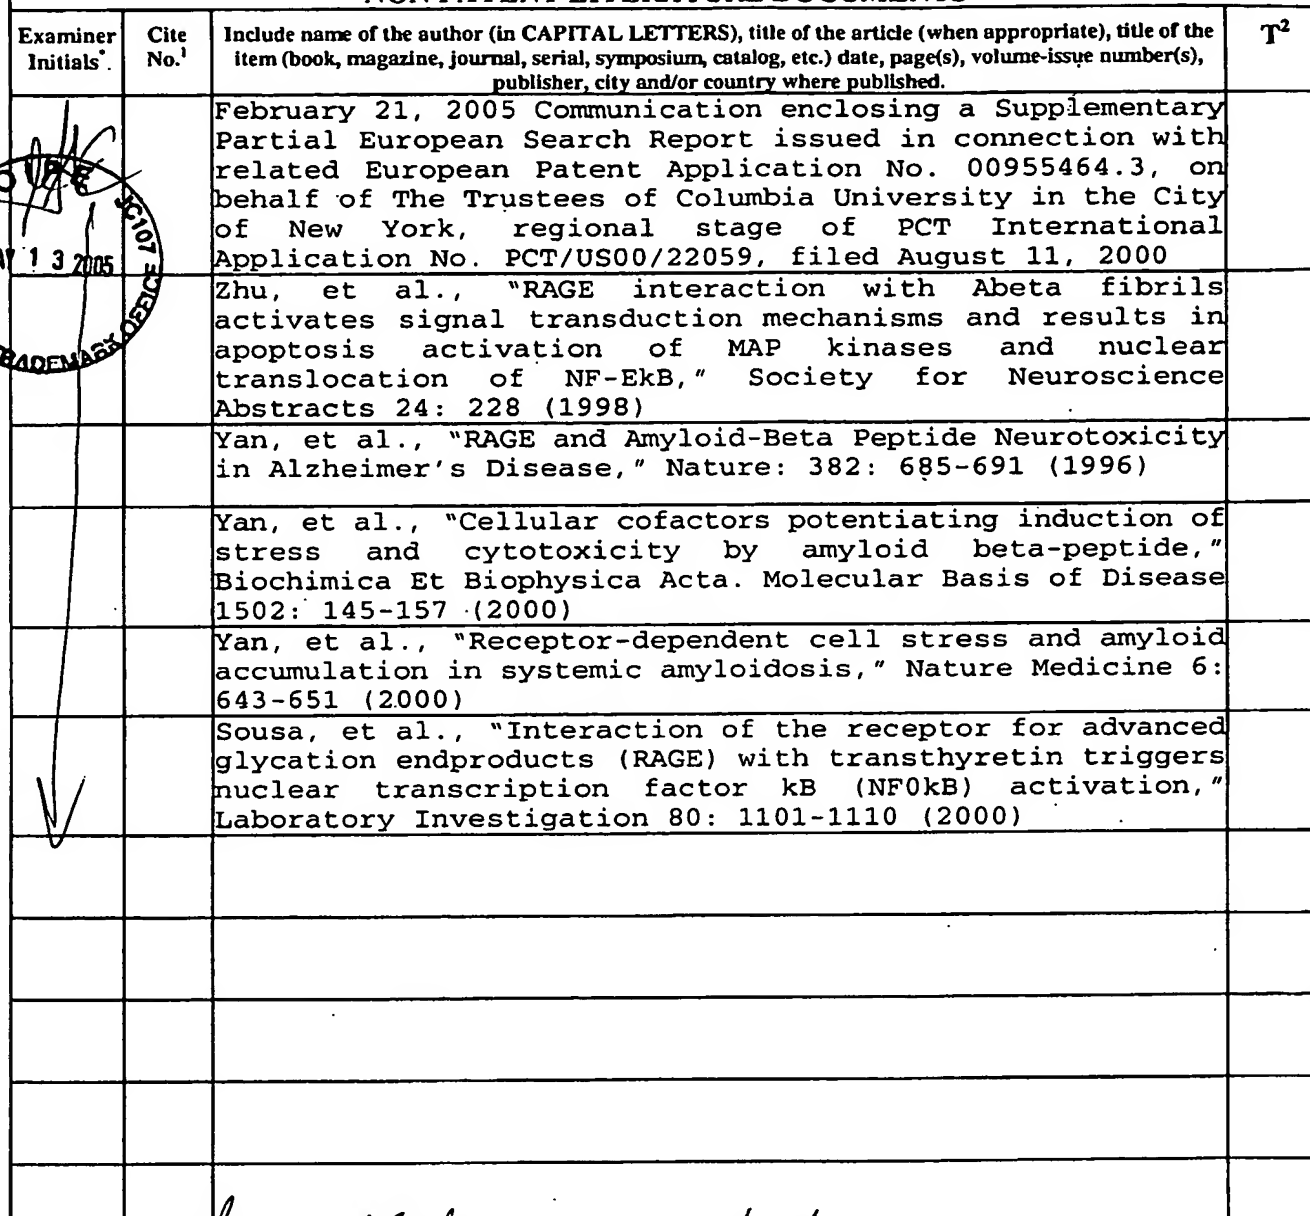 Examiner Initials*.
Cite No.¹
Include name of the author (in CAPITAL LETTERS), title of the article (when appropriate), title of the
item (book, magazine, journal, serial, symposium, catalog, etc.) date, page(s), volume-issue number(s),
publisher, city and/or country where published.
T²
February 21, 2005 Communication enclosing a Supplementary
Partial European Search Report issued in connection with
related European Patent Application No. 00955464.3, on
behalf of The Trustees of Columbia University in the City
of New York, regional stage of PCT International
Application No. PCT/US00/22059, filed August 11, 2000
Zhu, et al., "RAGE interaction with Abeta fibrils
activates signal transduction mechanisms and results in
apoptosis activation of MAP kinases and nuclear
translocation of NF-EkB," Society for Neuroscience
Abstracts 24: 228 (1998)
Yan, et al., "RAGE and Amyloid-Beta Peptide Neurotoxicity
in Alzheimer's Disease," Nature: 382: 685-691 (1996)
Yan, et al., "Cellular cofactors potentiating induction of
stress and cytotoxicity by amyloid beta-peptide,"
Biochimica Et Biophysica Acta. Molecular Basis of Disease
1502: 145-157 (2000)
Yan, et al., "Receptor-dependent cell stress and amyloid
accumulation in systemic amyloidosis," Nature Medicine 6:
643-651 (2000)
Sousa, et al., "Interaction of the receptor for advanced
glycation endproducts (RAGE) with transthyretin triggers
nuclear transcription factor kB (NF0kB) activation,"
Laboratory Investigation 80: 1101-1110 (2000)
JC107
13 2005
TRADEMARK OFFICE